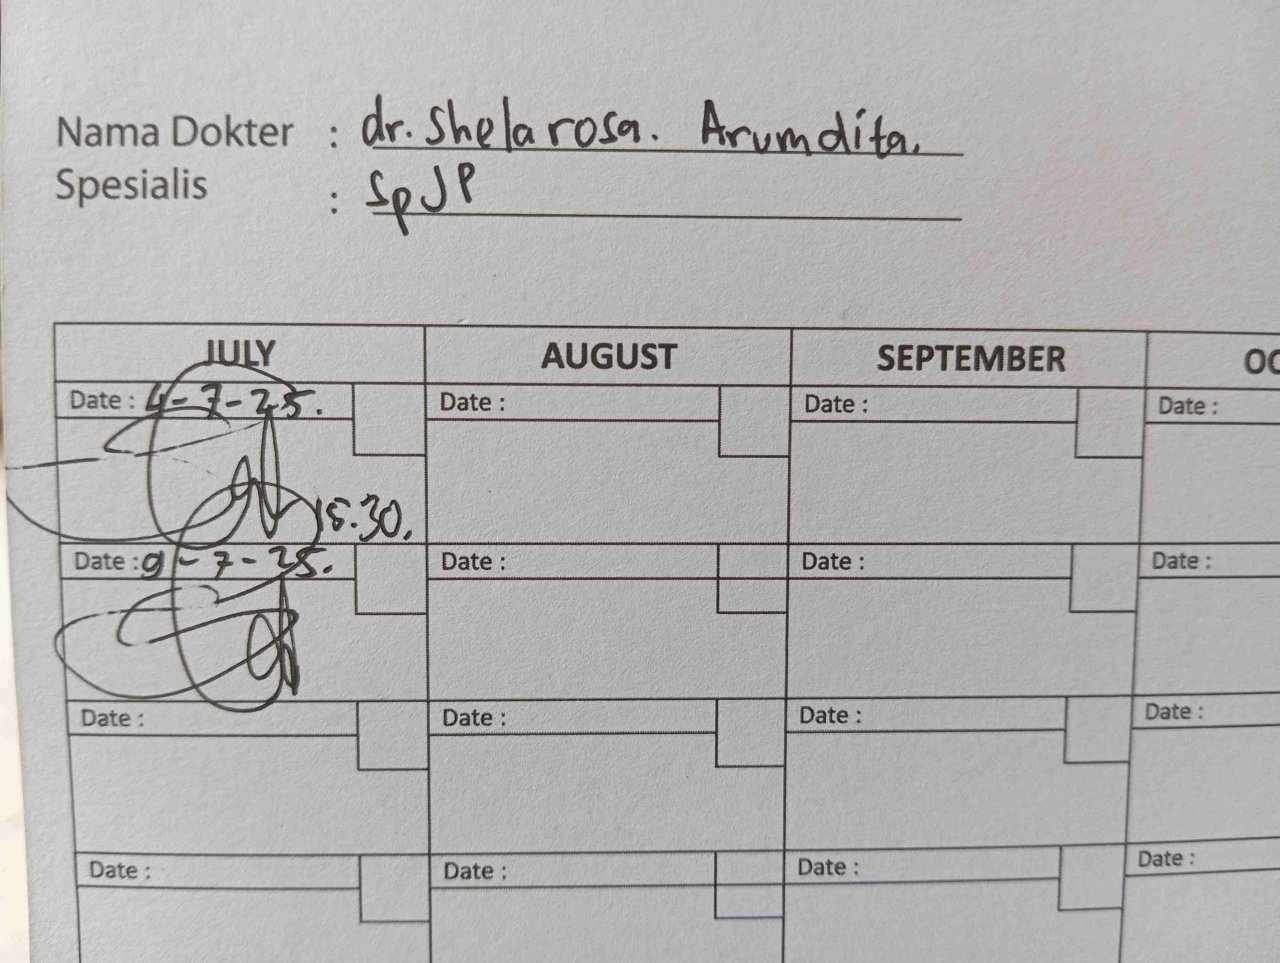 Nama Dokter : dr. Shela rosa. Arumdita.
Spesialis : SpJP
JULY AUGUST SEPTEMBER OC
Date : 4-7-25. Date : Date : Date :
15.30.
Date : 9-7-25. Date : Date : Date :
Date : Date : Date : Date :
Date : Date : Date : Date :